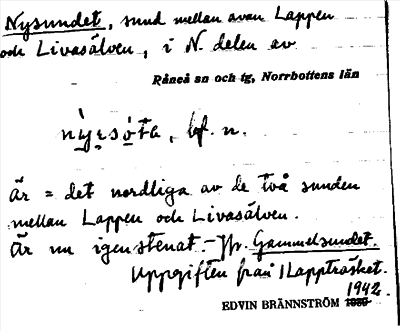 Nysundet, sund mellan avan Lappen
och Livasälven, i N. delen av
Råneå sn och tg, Norrbottens län
ný̱rsò̱ta, bf. n.
Är = det nordliga av de två sunden
mellan Lappen och Livasälven.
Är nu igenstenat. – Jfr. Gammelsundet.
Uppgiften från Lappträsket.
1942.
EDVIN BRÄNNSTRÖM 1939